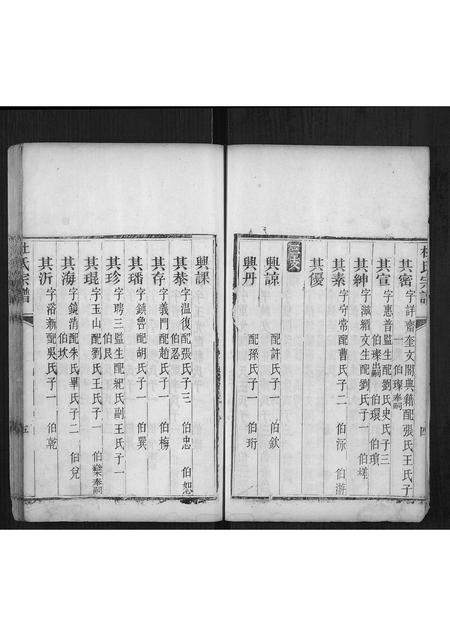 杜氏宗譜
四
其密 字詳齋奎文閣典籍配張氏王氏子一 伯璨奉嗣
其宣 字惠普監生配劉氏史氏子三 伯璨出嗣 伯環 伯璸
其紳 字滋緒文生配劉氏子一 伯瑳
其素 字守常配曹氏子二 伯泳 伯游
其優
興諒 配許氏子一 伯欽
興丹 配孫氏子一 伯珩
興課
其恭 字溫復配張氏子三 伯忠 伯恕 伯忍
其存 字義門配趙氏子一 伯梅
其璠 字鎮魯配胡氏子一 伯巽
其珍 字聘三監生配紀氏副王氏子一 伯艮
其琨 字玉山配劉氏王氏子一 伯樂奉嗣
其海 字鏡清配朱氏畢氏子二 伯兌 伯坎
其沂 字浴新配吳氏子一 伯乾
杜氏宗譜
五